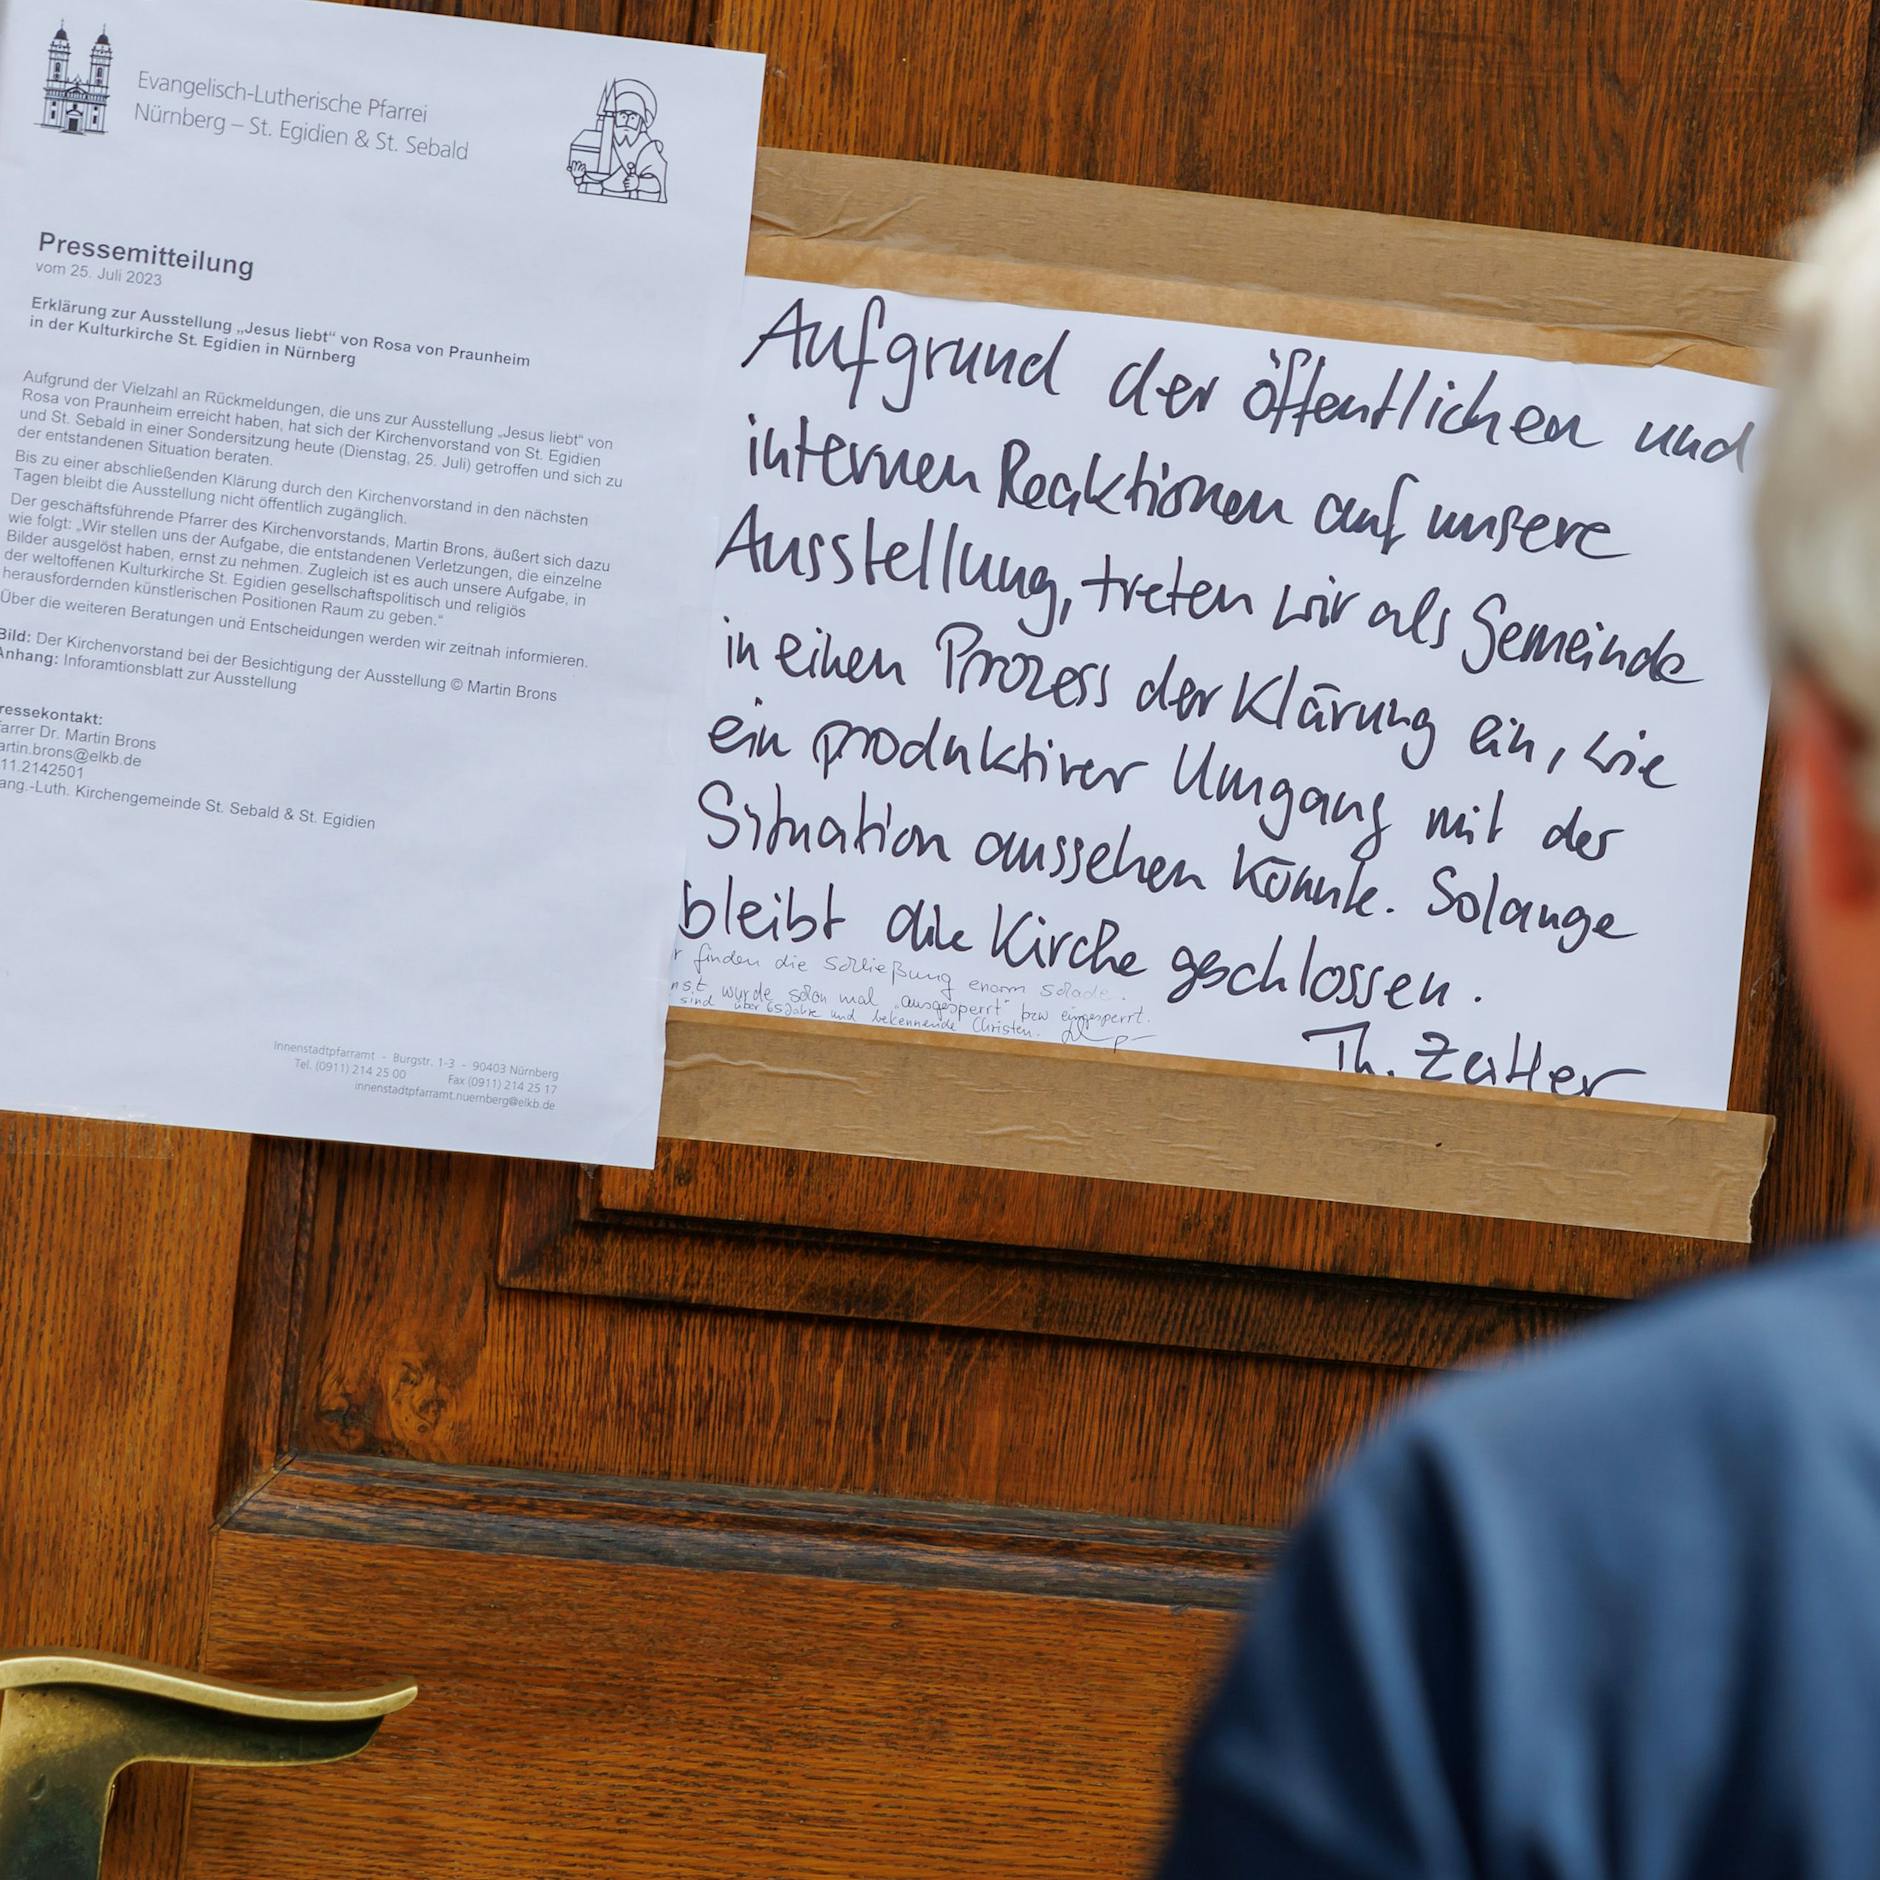 Evangelisch-Lutherische Pfarrei
Nürnberg – St. Egidien & St. Sebald
Pressemitteilung
vom 25. Juli 2023
Erklärung zur Ausstellung „Jesus liebt“ von Rosa von Praunheim
in der Kulturkirche St. Egidien in Nürnberg
Aufgrund der Vielzahl an Rückmeldungen, die uns zur Ausstellung „Jesus liebt“ von
Rosa von Praunheim erreicht haben, hat sich der Kirchenvorstand von St. Egidien
und St. Sebald in einer Sondersitzung heute (Dienstag, 25. Juli) getroffen und sich zu
der entstandenen Situation beraten.
Bis zu einer abschließenden Klärung durch den Kirchenvorstand in den nächsten
Tagen bleibt die Ausstellung nicht öffentlich zugänglich.
Der geschäftsführende Pfarrer des Kirchenvorstands, Martin Brons, äußert sich dazu
wie folgt: „Wir stellen uns der Aufgabe, die entstandenen Verletzungen, die einzelne
Bilder ausgelöst haben, ernst zu nehmen. Zugleich ist es auch unsere Aufgabe, in
der weltoffenen Kulturkirche St. Egidien gesellschaftspolitisch und religiös
herausfordernden künstlerischen Positionen Raum zu geben.“
Über die weiteren Beratungen und Entscheidungen werden wir zeitnah informieren.
Bild: Der Kirchenvorstand bei der Besichtigung der Ausstellung © Martin Brons
Anhang: Inforamtionsblatt zur Ausstellung
ressekontakt:
farrer Dr. Martin Brons
artin.brons@elkb.de
11.2142501
ang.-Luth. Kirchengemeinde St. Sebald & St. Egidien
Innenstadtpfarramt - Burgstr. 1-3 - 90403 Nürnberg
Tel. (0911) 214 25 00 Fax (0911) 214 25 17
innenstadtpfarramt.nuernberg@elkb.de
Aufgrund der öffentlichen und
internen Reaktionen auf unsere
Ausstellung, treten wir als Gemeinde
in einen Prozess der Klärung ein, wie
ein produktiver Umgang mit der
Situation aussehen könnte. Solange
bleibt die Kirche geschlossen.
r finden die Schließung enorm schade.
nst wurde schon mal „ausgesperrt“ bzw eingesperrt.
sind über 65 Jahre und bekennende Christen.
Th. Zeitler